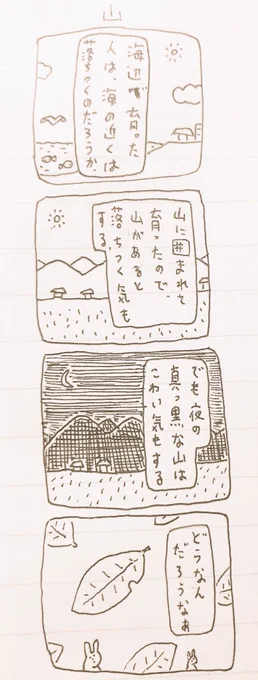 山
海辺で育った
人は、海の近くは
落ちつくのだろうか。
山に囲まれて
育ったので、
山があると
落ちつく気も
する。
でも、夜の
真っ黒な山は
こわい気もする
どうなん
だろうなぁ